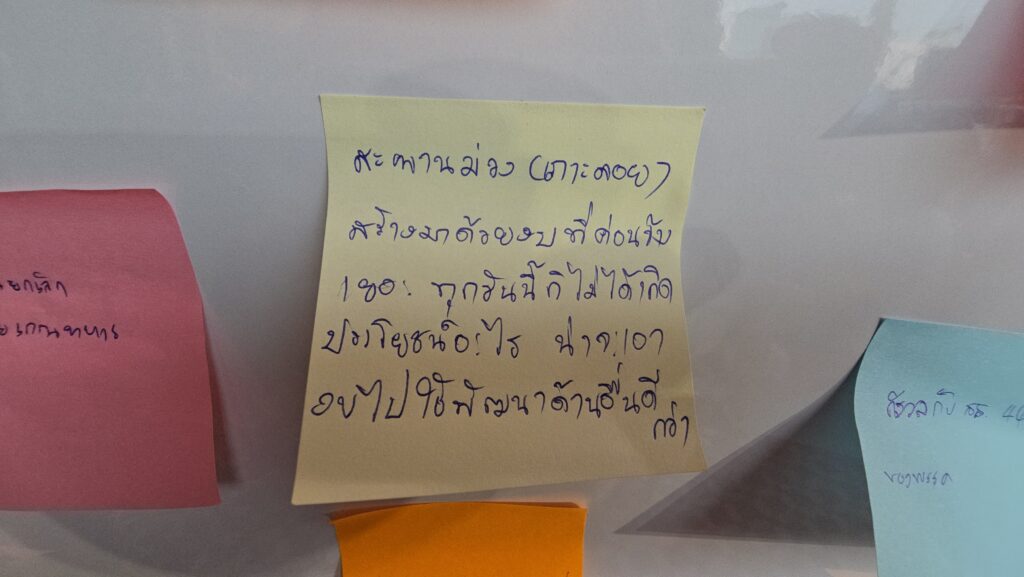 สะพานม่วง (เกาะลอย)
สร้างมาด้วยงบที่ค่อนข้าง
เยอะ ทุกวันนี้ก็ไม่ได้เกิด
ประโยชน์อะไร น่าจะเอา
งบไปใช้พัฒนาด้านอื่นดี
กว่า
ยกเลิก
เกณฑ์ทหาร
ของพรรค